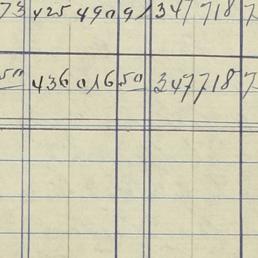 73 425 490 91 347 718 7
50 436 016 50 347 718 7